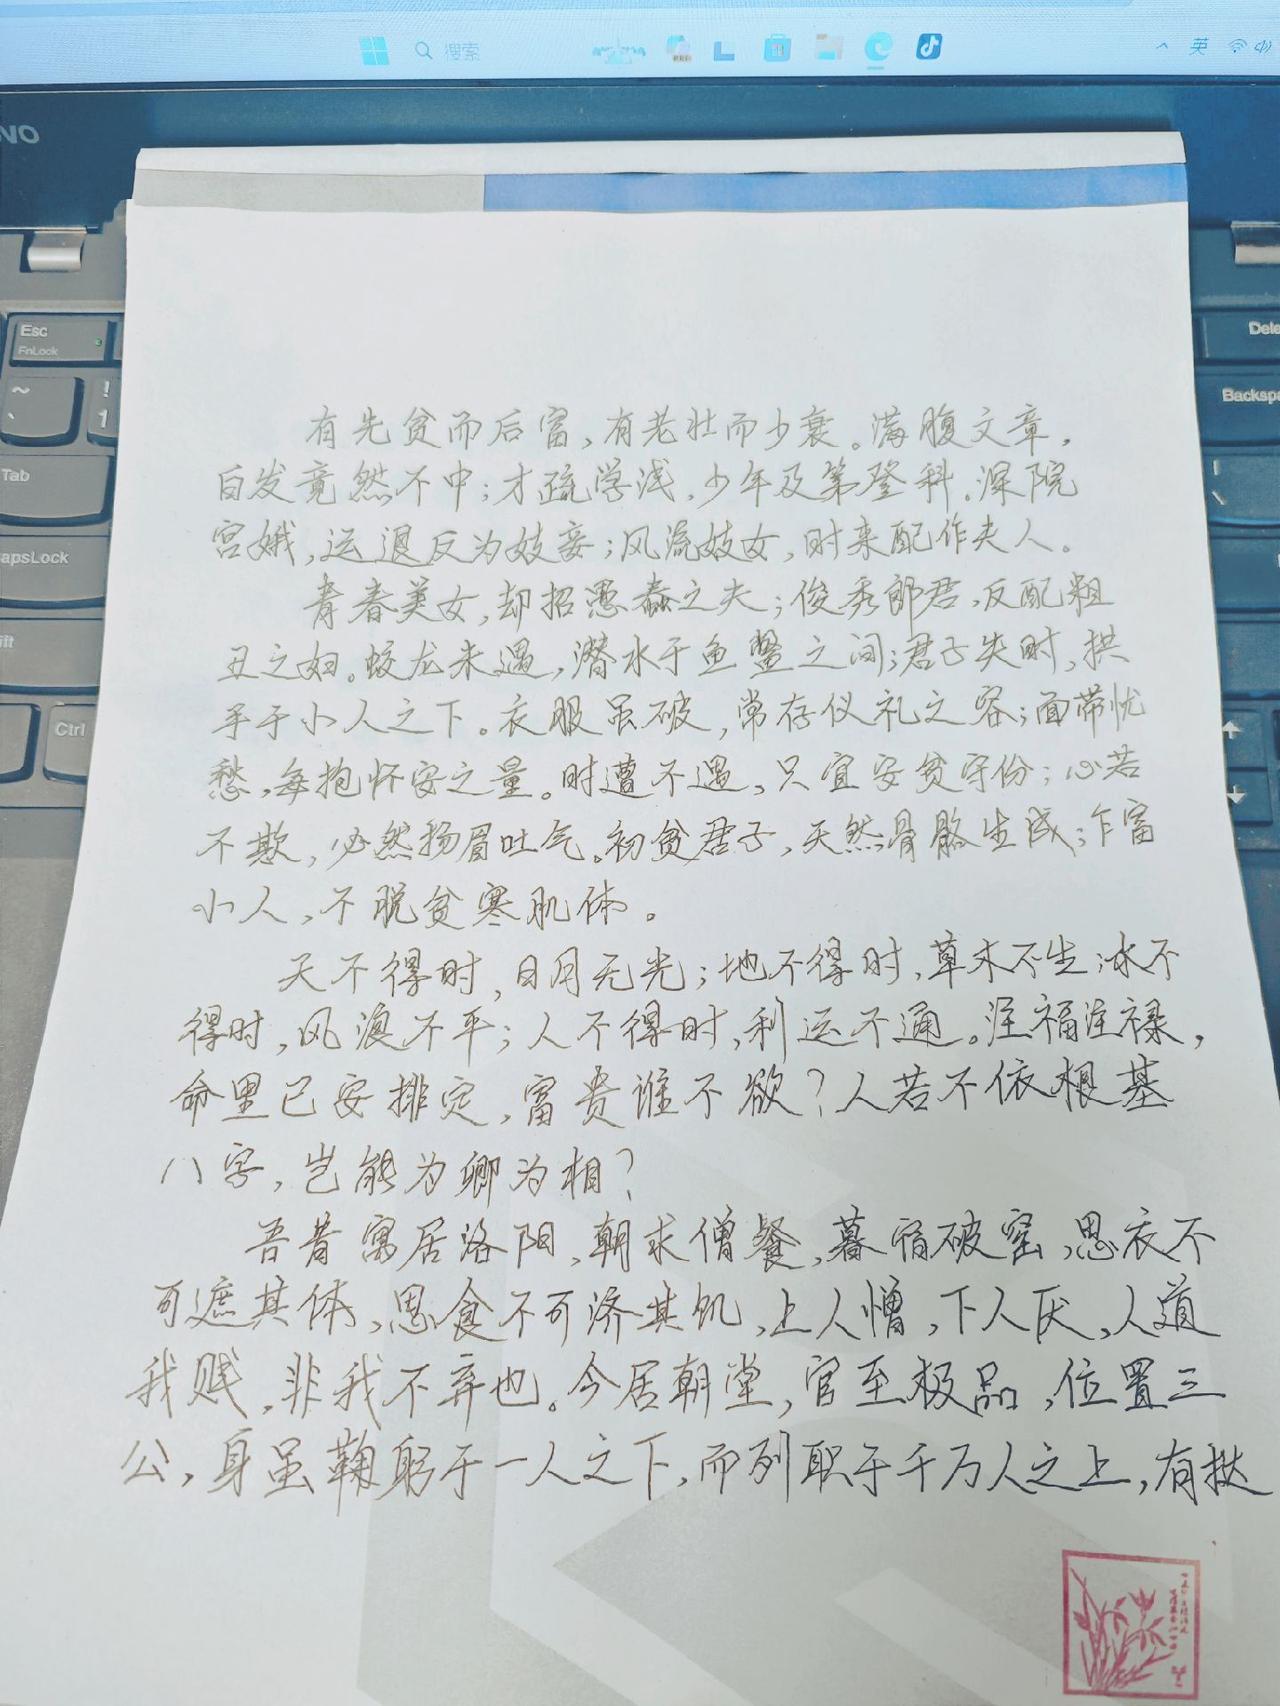 搜索
英
NO
Esc
FnLock
Dele
~
!
1
Backspa
Tab
apsLock
ift
Ctrl
有先贫而后富,有老壮而少衰。满腹文章,
白发竟然不中;才疏学浅,少年及第登科。深院
宫娥,运退反为妓妾;风流妓女,时来配作夫人。
青春美女,却招愚蠢之夫;俊秀郎君,反配粗
丑之妇。蛟龙未遇,潜水于鱼鳖之间;君子失时,拱
手于小人之下。衣服虽破,常存仪礼之容;面带忧
愁,每抱怀安之量。时遭不遇,只宜安贫守份;心若
不欺,必然扬眉吐气。初贫君子,天然骨骼生成;乍富
小人,不脱贫寒肌体。
天不得时,日月无光;地不得时,草木不生;水不
得时,风浪不平;人不得时,利运不通。注福注禄,
命里已安排定,富贵谁不欲?人若不依根基
八字,岂能为卿为相?
吾昔寓居洛阳,朝求僧餐,暮宿破窑,思衣不
可遮其体,思食不可济其饥,上人憎,下人厌,人道
我贱,非我不弃也。今居朝堂,官至极品,位置三
公,身虽鞠躬于一人之下,而列职于千万人之上,有挞